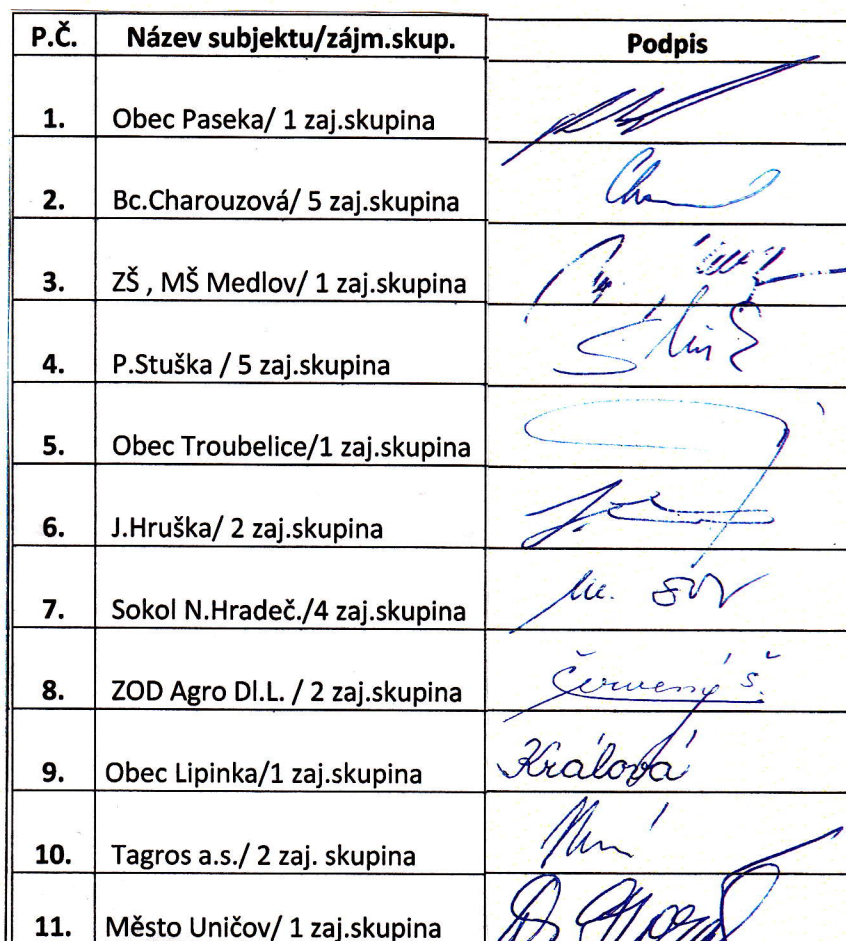 P.Č. Název subjektu/zájm.skup. Podpis
1. Obec Paseka/ 1 zaj.skupina
2. Bc.Charouzová/ 5 zaj.skupina
3. ZŠ , MŠ Medlov/ 1 zaj.skupina
4. P.Stuška / 5 zaj.skupina
5. Obec Troubelice/1 zaj.skupina
6. J.Hruška/ 2 zaj.skupina
7. Sokol N.Hradeč./4 zaj.skupina
8. ZOD Agro Dl.L. / 2 zaj.skupina Červený Š.
9. Obec Lipinka/1 zaj.skupina Králová
10. Tagros a.s./ 2 zaj. skupina
11. Město Uničov/ 1 zaj.skupina